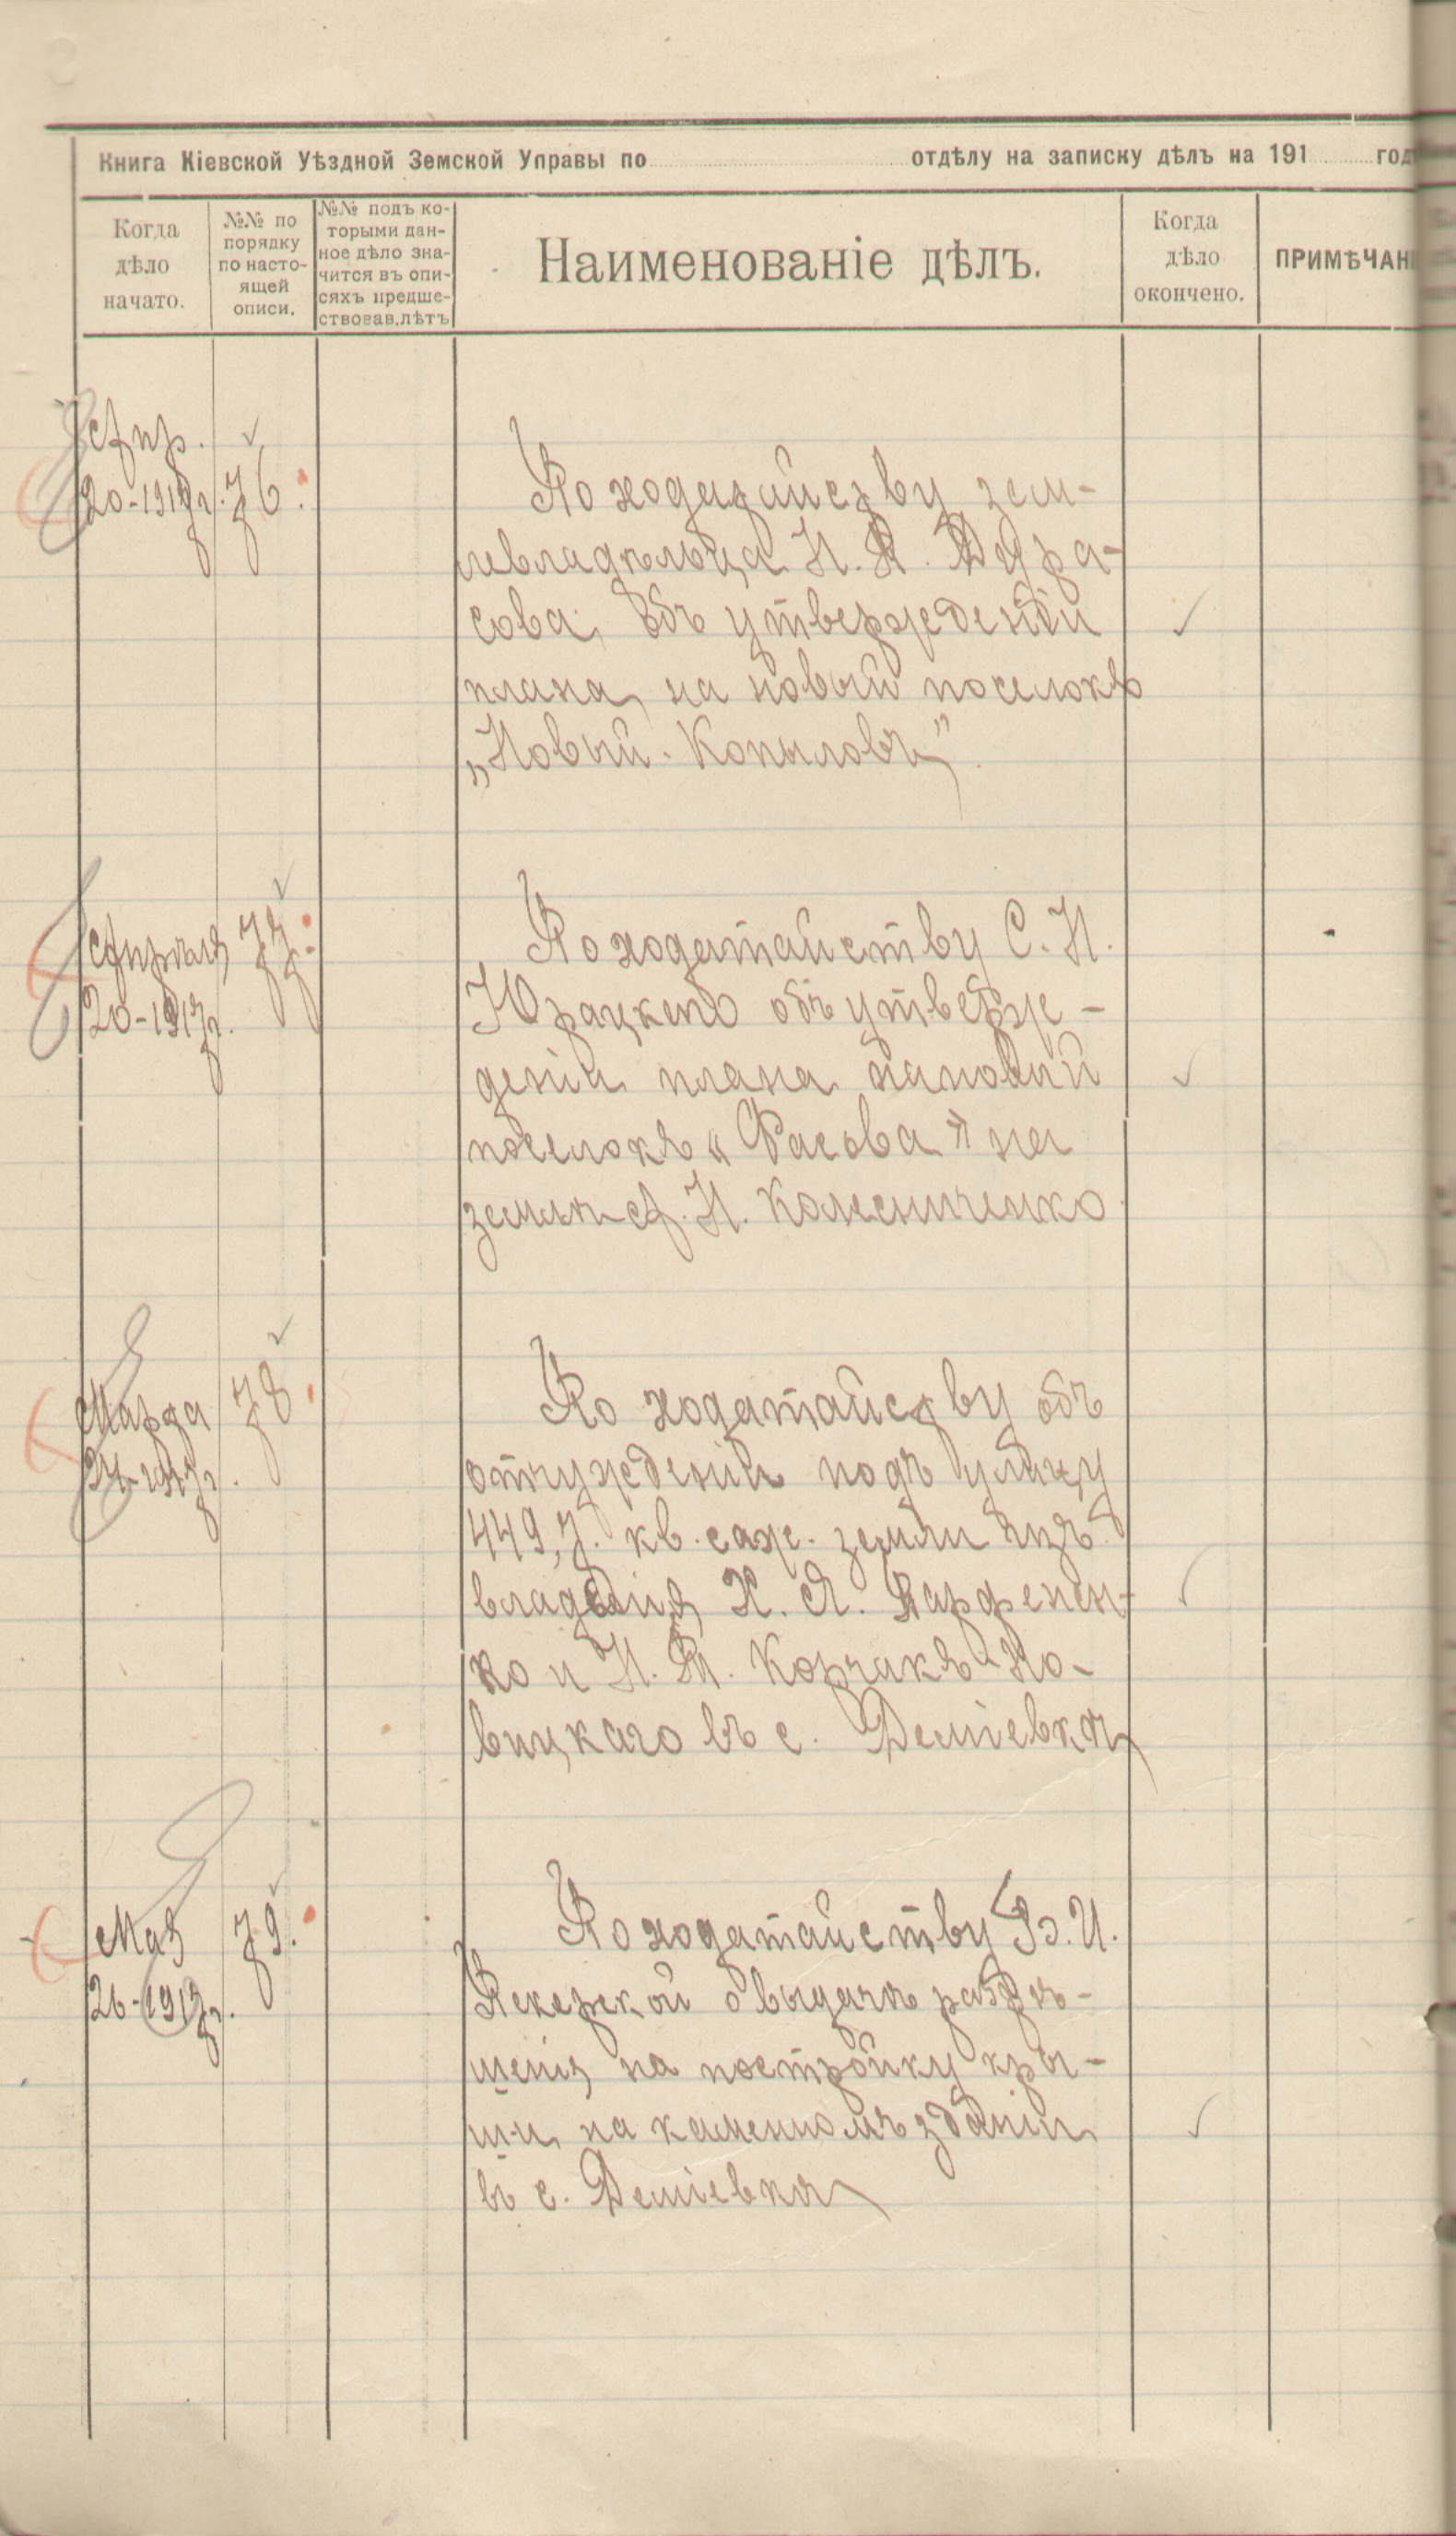 Книга Кіевской Уѣздной Земской Управы по отдѣлу на записку дѣлъ на 191 год
Когда дѣло начато.
№№ по порядку по насто-ящей описи.
№№ подъ ко-торыми дан-ное дѣло зна-чится въ опи-сяхъ предше-ствовав.лѣтъ
Наименованіе дѣлъ.
Когда дѣло окончено.
ПРИМѢЧАН
Апр.
20-1917г. 76.
По ходатайству зем-
левладѣльца Н. П. Дура-
сова, объ утвержденіи
плана, на новый поселокъ
„Новый-Копыловъ"
Апрѣля 77.
20-1917г.
По ходатайству С. Н.
Юрацкаго объ утверж-
деніи плана на новый
поселокъ „Расова" на
землѣ А. Н. Колесниченко
Марта 78.
24-1917г.
По ходатайству объ
отчужденіи подъ улицу
449,7. кв. саж. земли изъ
владѣнія Н. Я. Парфенен-
ко и Н. Т. Корчакъ-Но-
вицкаго въ с. Деміевкѣ
Мая 79.
26-1917г.
По ходатайству В. И.
о выдачѣ разрѣ-
шенія на постройку кры-
ши, на каменномъ зданіи
въ с. Деміевкѣ